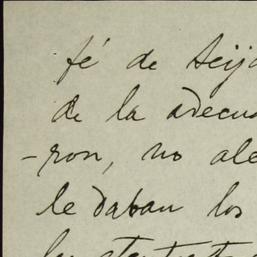 fé de Seijo
de la adecua
-ron, no ale
le daban los